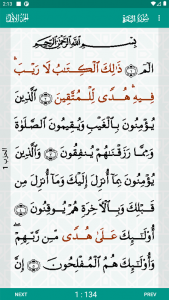 2:13
سُورَةُ البَقَرَةِ
الجزء الأول
بِسْمِ اللَّهِ الرَّحْمَٰنِ الرَّحِيمِ
الٓمٓ ۝ ذَٰلِكَ ٱلْكِتَٰبُ لَا رَيْبَ ۛ
فِيهِ ۛ هُدًى لِّلْمُتَّقِينَ ۝ ٱلَّذِينَ
يُؤْمِنُونَ بِٱلْغَيْبِ وَيُقِيمُونَ ٱلصَّلَوٰةَ
وَمِمَّا رَزَقْنَٰهُمْ يُنفِقُونَ ۝ وَٱلَّذِينَ
يُؤْمِنُونَ بِمَآ أُنزِلَ إِلَيْكَ وَمَآ أُنزِلَ مِن
قَبْلِكَ وَبِٱلْءَاخِرَةِ هُمْ يُوقِنُونَ ۝
أُو۟لَٰٓئِكَ عَلَىٰ هُدًى مِّن رَّبِّهِمْ ۖ
وَأُو۟لَٰٓئِكَ هُمُ ٱلْمُفْلِحُونَ ۝
الحزب 1
NEXT
1 : 134
PREV